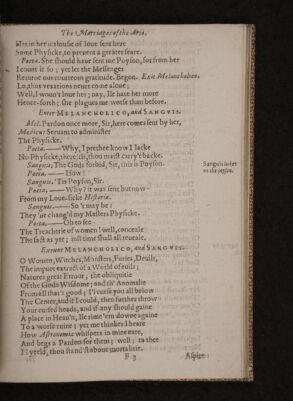 The Marriages of the Arts.
Her in her in house of loue sent here
Some Physicke, to preuent a greater feare.
Poeta. She should haue sent me Poyson, for from her
I count it so; yet let the Messenger
Returne our courteous gratitude. Begon. Exit Melancholico.
Lo, thus vexations neuer come alone;
Well, I woun't loue her; nay, Ile hate her more
Hence-forth; she plagues me worse than before.
Enter MELANCHOLICO, and SANGVIS.
Mel. Pardon once more, Sir, here comes sent by her,
Medicus Seruant to administer
The Physicke.
Poeta. —— Why, I prethee know I lacke
No Physicke, there 'tis, thou maist carry't backe.
Sanguis. The Gods forbid, Sir, this is Poyson.
Sanguis lookes
on the poyson.
Poeta. —— How!
Sanguis. 'Tis Poyson, Sir.
Poeta. —— Why? it was sent but now
From my Loue-sicke Historia.
Sanguis. —— So't may be:
They 'ue chang'd my Masters Physicke.
Poeta. —— Oh to see
The Treacherie of women! well, conceale
The fact as yet; just time shall all reueale.
Exeunt MELANCHOLICO, and SANGVIS.
O Women, Witches, Monsters, Furies, Deuils,
The impure extract of a World of euils;
Natures great Errour, the obliquitie
Of the Gods Wisdome; and th' Anomalie
From all that's good; I'l curse you all below
The Center, and if I could, then further throw
Your cursed heads, and if any should gaine
A place in Heau'n, Ile rime 'em downe againe
To a worse ruine; yet me thinkes I heare
How Astronomia whispers in mine eare,
And begs a Pardon for them; well; to thee
I yeeld, thou stand'st about mortalitie.
F 3
Aspire